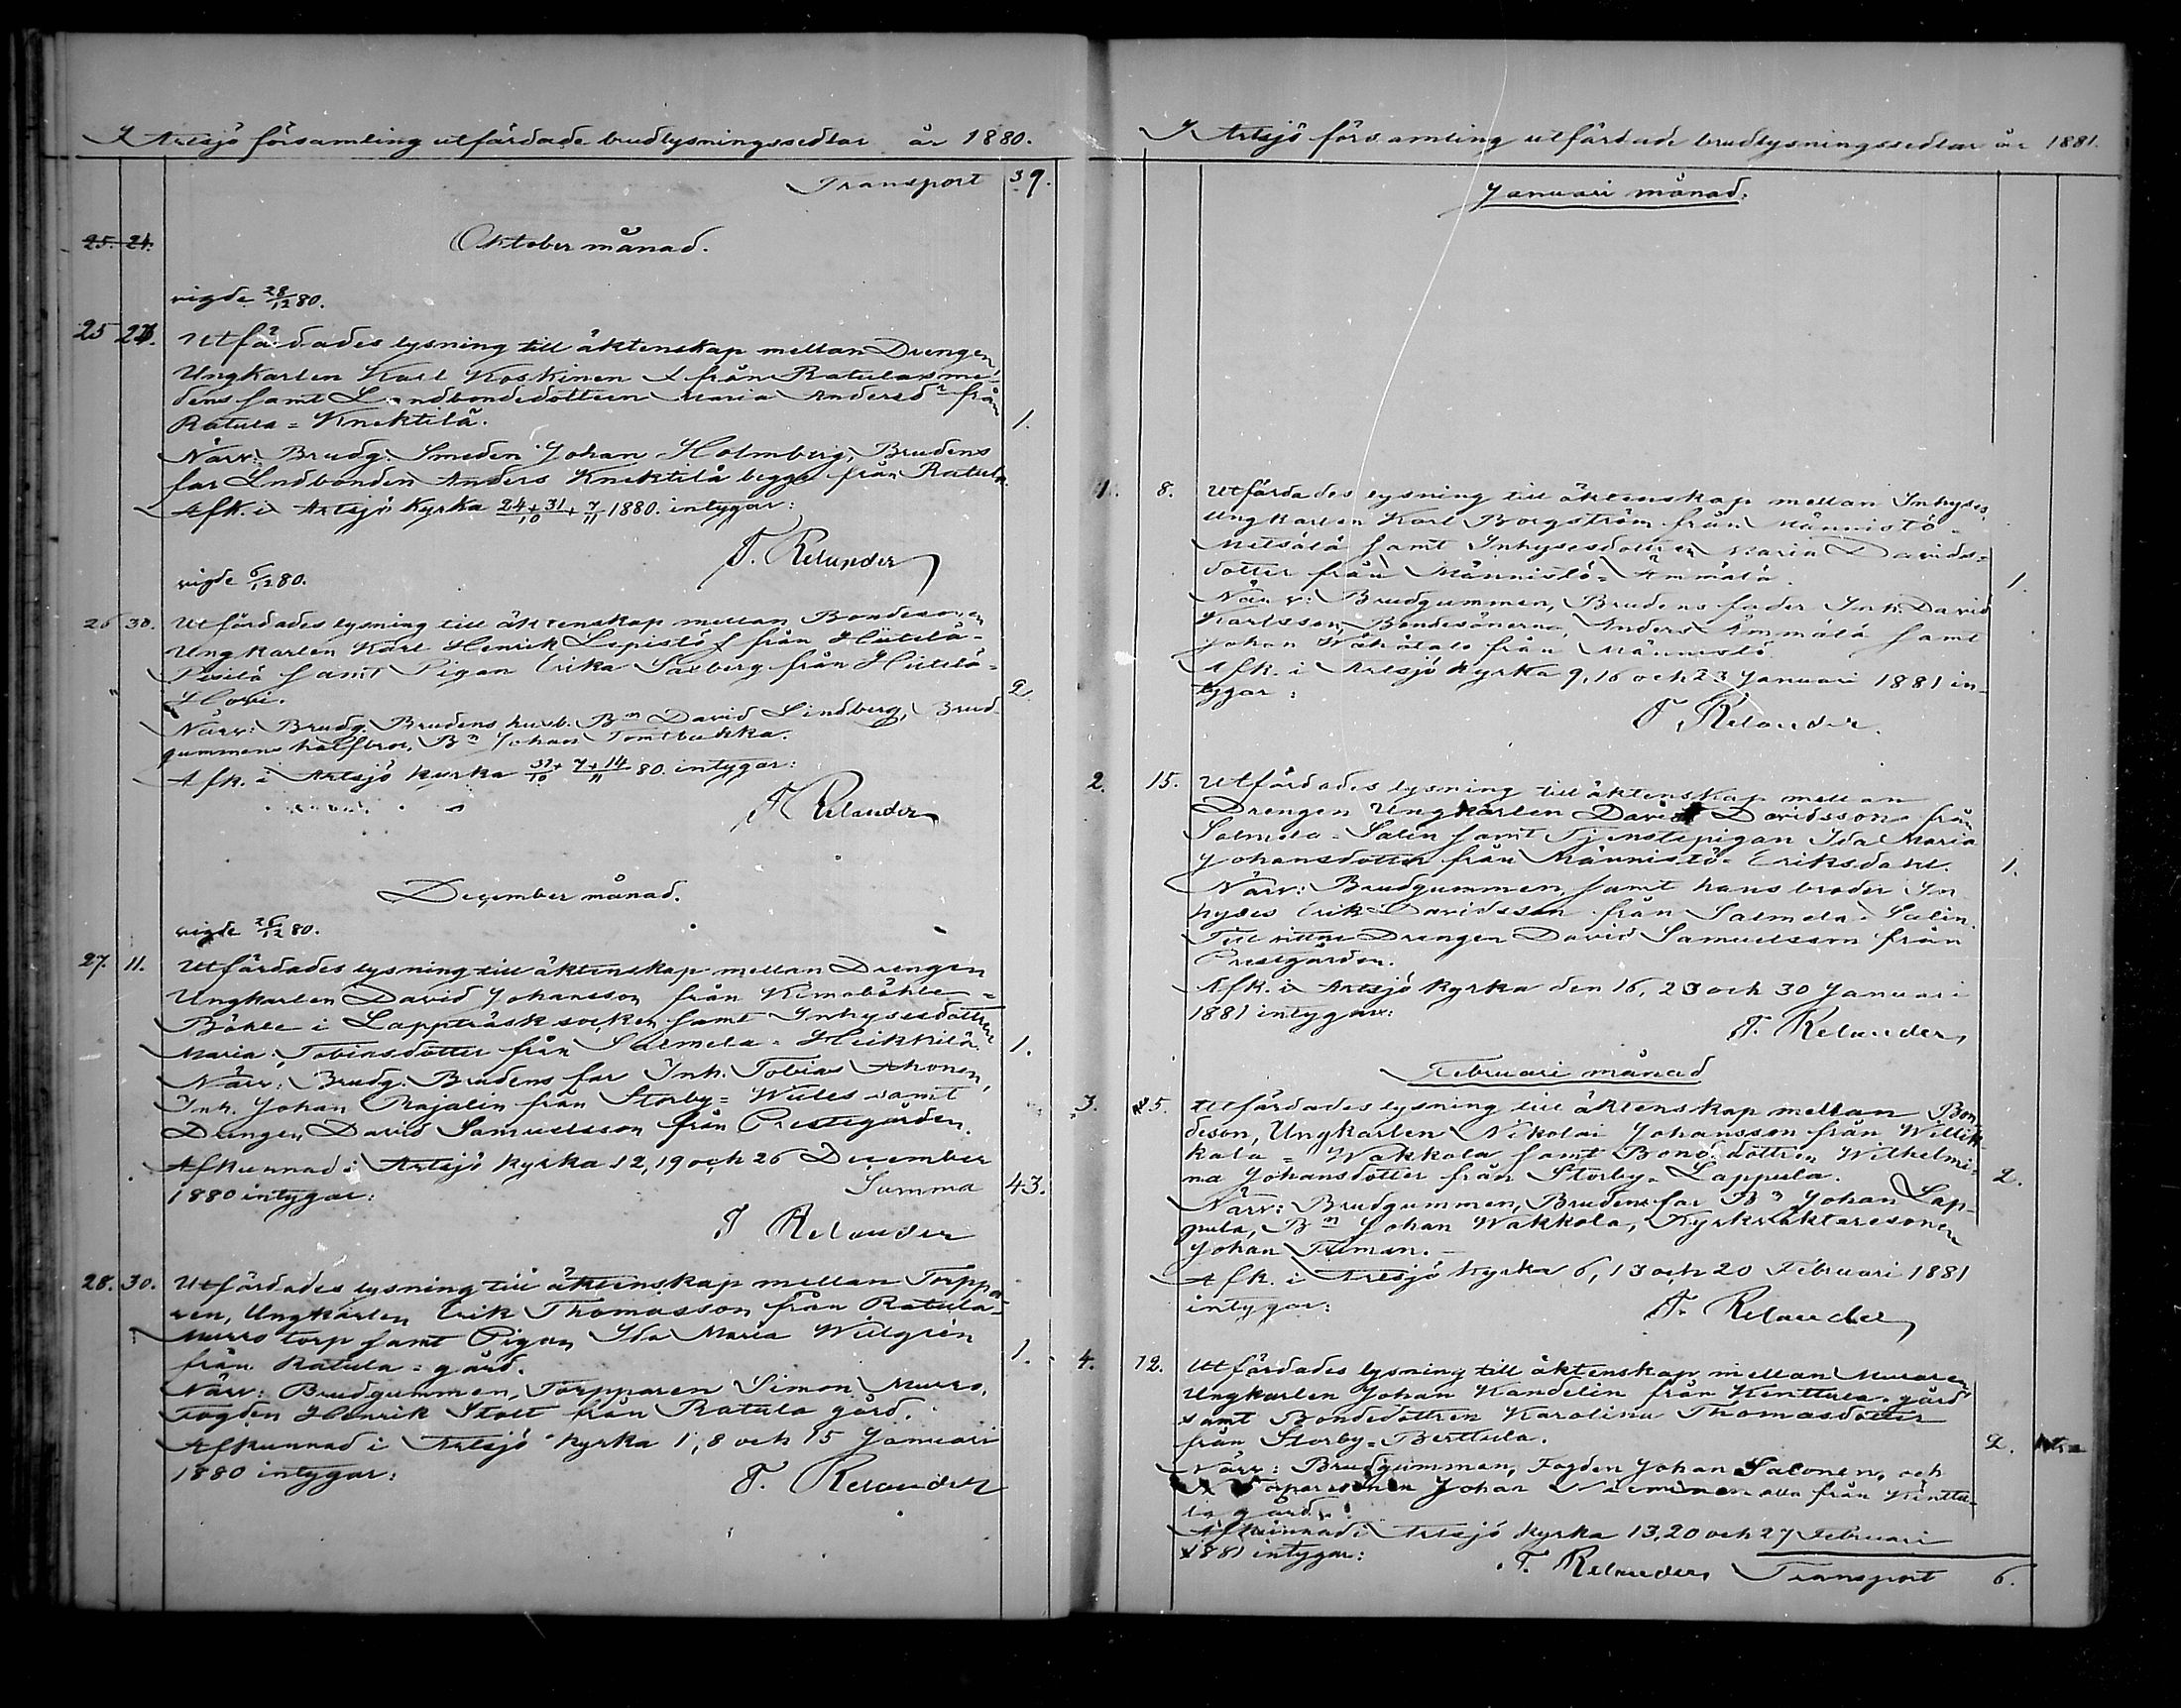 I Artsjö församling utfärdade brudlysningssedlar år 1880.
Transport 39.
25. 24. Oktober månad.
vigde 28/12 80.
25 23. Utfärdades lysning till äktenskap mellan Drengen,
Ungkarlen Karl Koskinen från Ratula sme-
dens samt Landbondedottren Maria Andersdr från
Ratula = Knektilä. 1.
Närv: Brudg. Smeden Johan Holmberg, Brudens
far Lndbonden Anders Knektilä begge från Ratula.
Afk. i Artsjö Kyrka 24+31/10 + 7/11 1880. intygar:
T. Relander
vigde 6/12 80.
26 30. Utfärdades lysning till äktenskap mellan Bondesonen
Ungkarlen Karl Henrik Lepistö från Hiitelä-
Pisilä samt Pigan Erika Saxberg från Hiitelä-
Hovi. 2.
Närv: Brudg. Brudens husb. Bn David Lindberg, Brud-
gummens halfbror, Bn Johan Tomtbakka.
Afk. i Artsjö kyrka 31/10 + 7+14/11 80. intygar:
T. Relander
December månad.
vigde 26/12 80.
27. 11. Utfärdades lysning till äktenskap mellan Drengen
Ungkarlen David Johansson från Kimoböhle =
Böhle i Lappträsk socken samt Inhysesdottren
Maria Tobiasdotter från Salmela = Heikkilä. 1.
Närv: Brudg. Brudens far Inh. Tobias Ahonen,
Inh. Johan Rajalin från Storby = Willes samt
Drengen David Samuelsson från Prestegården.
Afkunnad i Artsjö kyrka 12, 19 och 26 December
1880 intygar: Summa 43.
T Relander
28. 30. Utfärdades lysning till äktenskap mellan Torppa-
ren, Ungkarlen Erik Thomasson från Ratula-
Murro torp samt Pigan Ida Maria Willgrén
från Ratula = gård. 1.
Närv: Brudgummen, Torpparen Simon Murro,
Fogden Henrik Stolt från Ratula gård.
Afkunnad i Artsjö kyrka 1, 8 och 15 Januari
1880 intygar: T. Relander
I Artsjö församling utfärdade brudlysningssedlar år 1881.
Januari månad.
1. 8. Utfärdades lysning till äktenskap mellan Inhyses
Ungkarlen Karl Borgström från Männistö-
Metsälä samt Inhysesdottren Maria Davids-
dotter från Männistö = Ämmälä. 1.
Närv: Brudgummen, Brudens fader Inh. David
Karlsson, Bondesönerna, Anders Ämmälä samt
Johan från Männistö
Afk. i Artsjö kyrka 9, 16 och 23 Januari 1881 in-
tygar:
T. Relander.
2. 15. Utfärdades lysning till äktenskap mellan
Drengen Ungkarlen David Davidsson från
Salmela = Salin samt Tjenstepigan Ida Maria
Johansdotter från Männistö- Eriksdahl. 1.
Närv: Brudgummen, samt hans broder In-
hyses Erik Davidsson från Salmela = Salin.
Till vittne Drengen David Samuelsson från
Prestgården.
Afk. i Artsjö Kyrka den 16, 23 och 30 Januari
1881 intygar:
T. Relander
Februari månad
3. 5. Utfärdades lysning till äktenskap mellan Bon-
deson, Ungkarlen Nikolai Johansson från Willik-
kala = Wakkola samt Bondedottren Wilhelmi-
na Johansdotter från Storby = Lappula. 2.
Närv: Brudgummen, Brudens far Bn Johan Lap-
pula, Bn Johan Wakkola, Kyrkväktaresonen
Johan
Afk. i Artsjö kyrka 6, 13 och 20 Februari 1881
intygar:
T. Relander
4. 12. Utfärdades lysning till äktenskap mellan Muraren
Ungkarlen Johan Kandelin från Kinttula = gård
samt Bondedottren Karolina Thomasdotter
från Storby = Berttula. 2.
Närv: Brudgumman, Fogden Johan Salonen, och
Torparesonen Johan Nieminen alla från Kinttu-
la gård.
Afkunnad i Artsjö kyrka 13, 20 och 27 Februari
1881 intygar:
T. Relander, Transport 6.